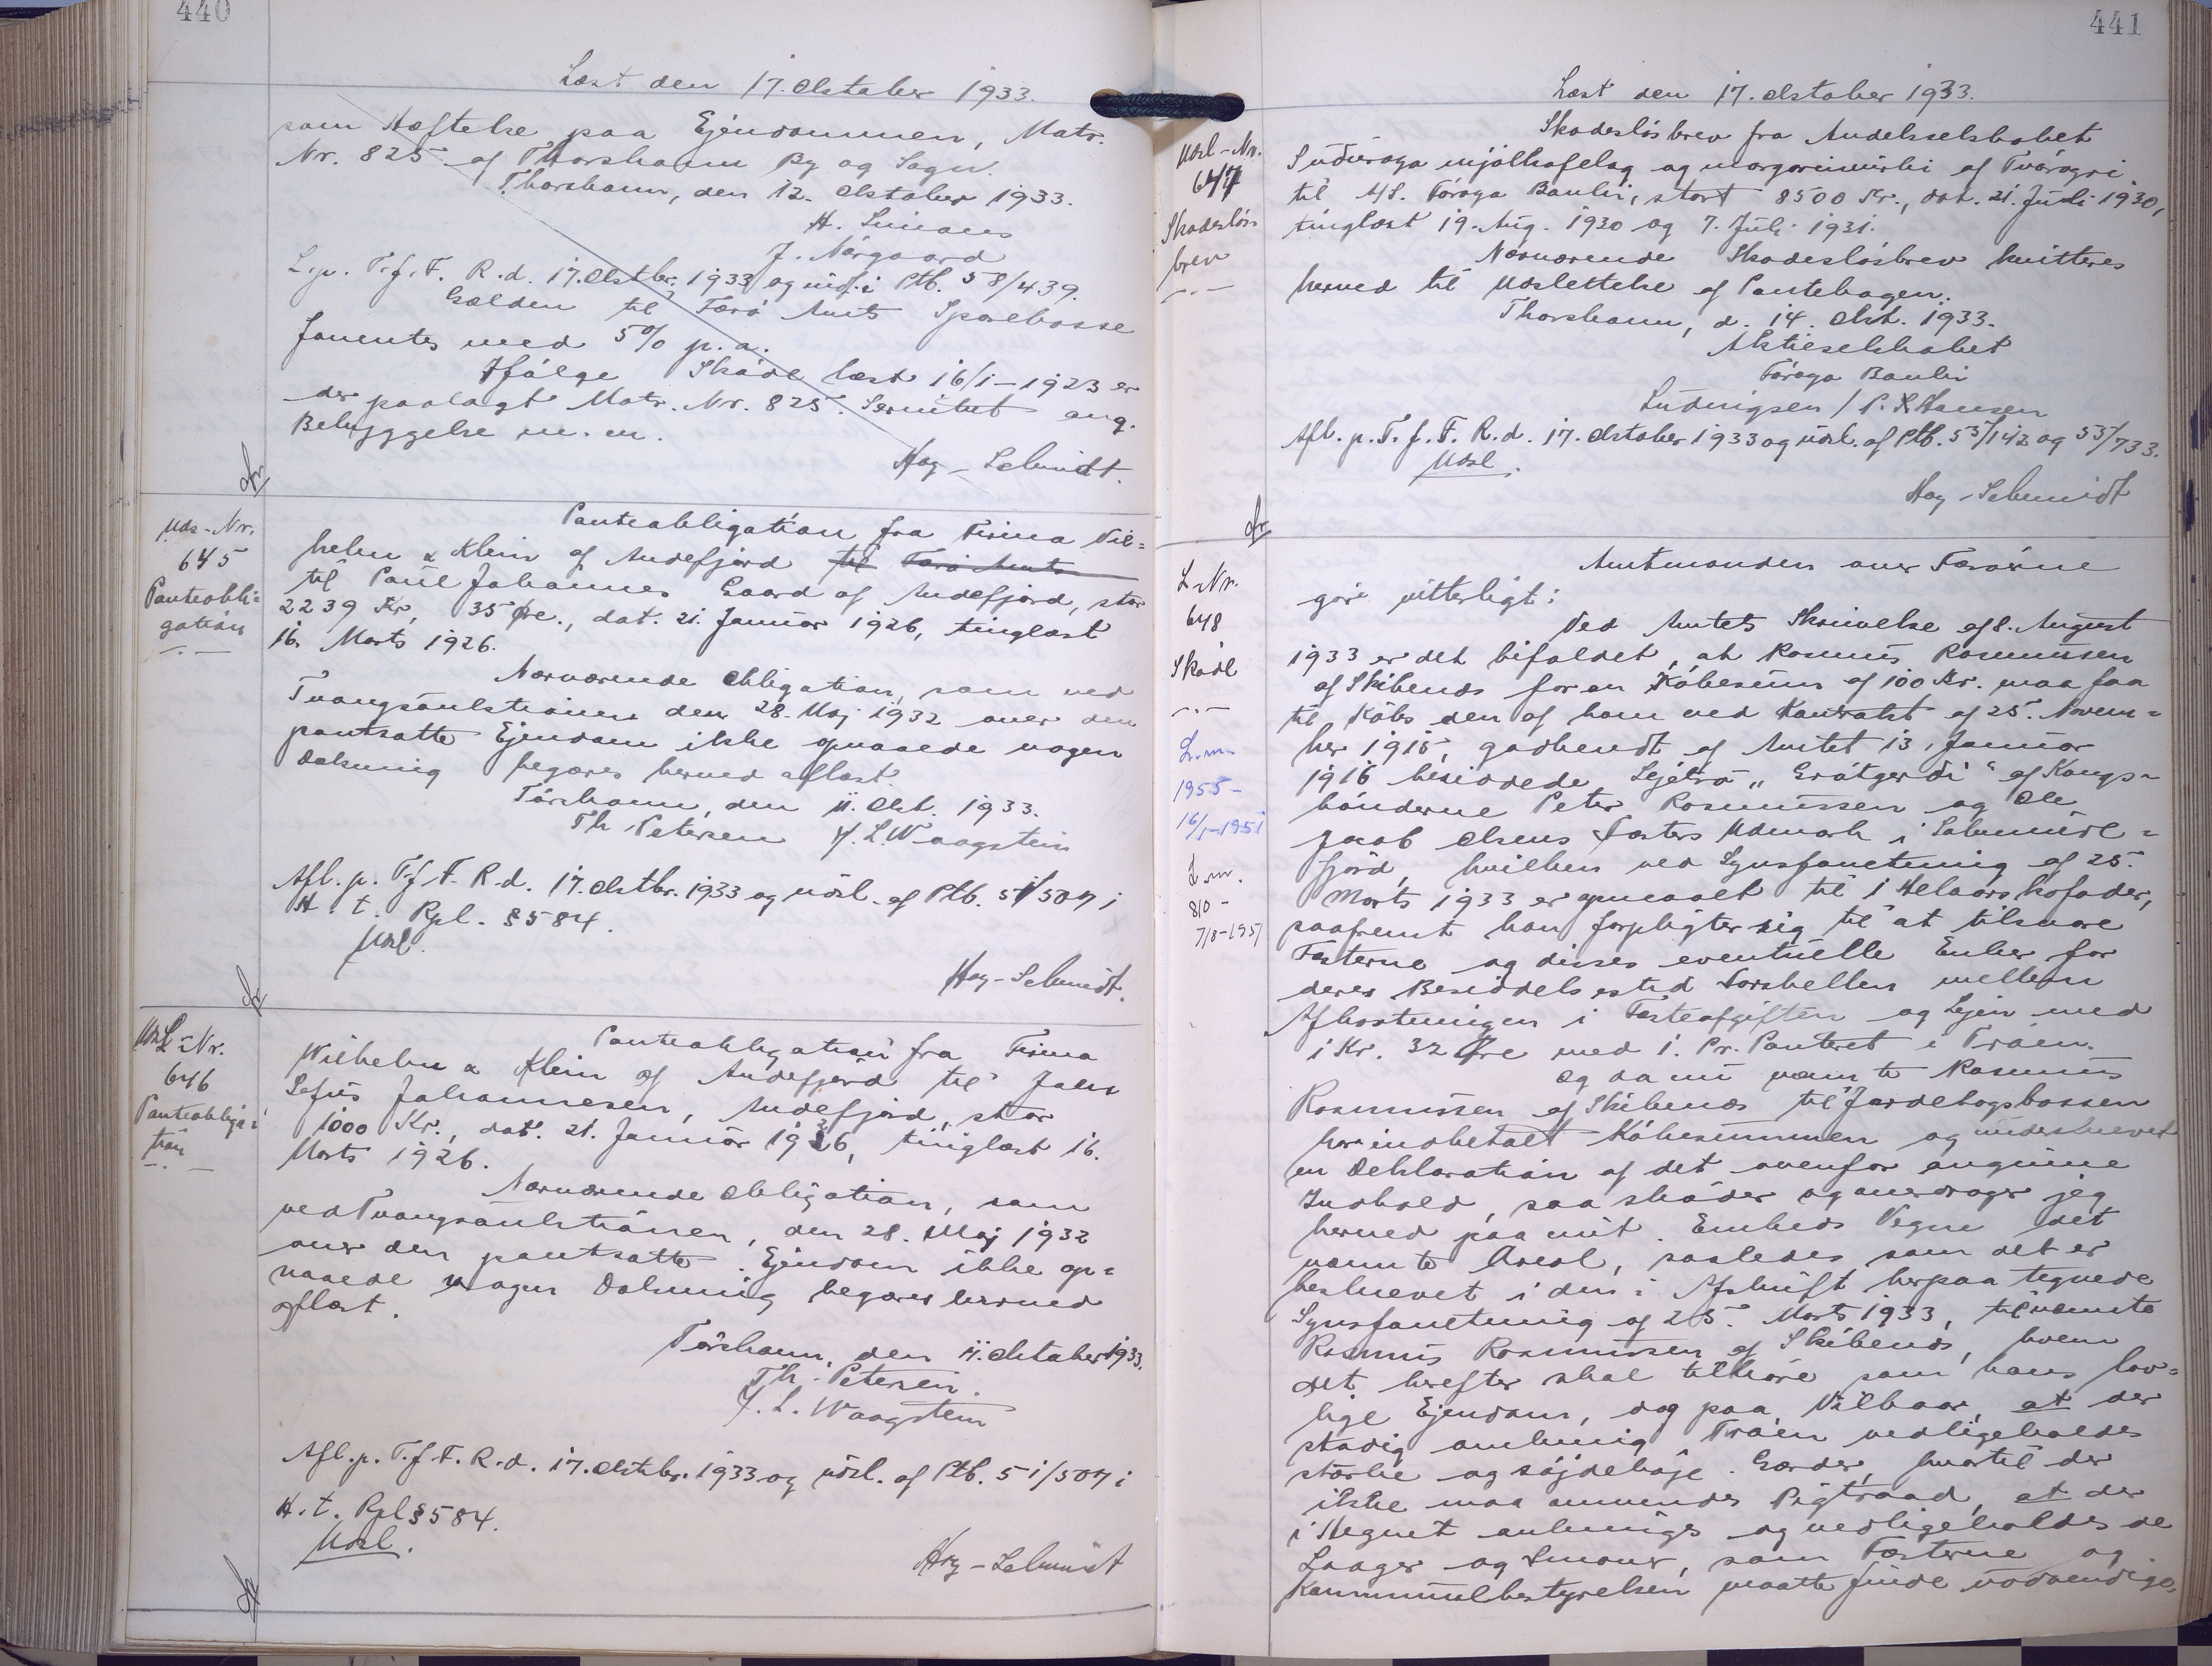 440
Læst den 17. Oktober 1933.
som Hæftelse paa Ejendommen, Matr.
Nr. 825 af Thorshavn By og Sogn.
Thorshavn, den 12. Oktober 1933.
H. Simans
J. Nórgaard
L. p. T. f. F. R. d. 17. Oktbr. 1933 og indf. i Ptb. 58/439.
Gælden til Færø Amts Sparekasse
forrentes med 5% p. a.
Ifølge Skøde læst 16/1-1923 er
der paalagt Matr. Nr. 825 Servitut ang.
Bebyggelse m. m.
Høg-Schmidt.
Uds-Nr.
645
Panteobli=
gation
Panteobligation fra Firma Vil=
helm & Klein af Andefjord til Færø Amts
til Poul Johannes Gaard af Andefjord, stor
2239 Kr, 35 Øre., dat. 21. Januar 1926, tinglæst
16. Marts 1926.
Nærværende Obligation, som ved
Tvangsauktionen den 28. Maj 1932 over den
pantsatte Ejendom ikke opnaaede nogen
Dækning begæres herved aflæst.
Tórshavn, den 11. Okt. 1933.
Th. Petersen J. L. Waagstein
Afl. p. T. f. F. R. d. 17. Oktbr. 1933 og udsl. af Ptb. 51/507 i
H. t. Rpl. § 584.
Udsl.
Høg-Schmidt.
UdsL-Nr.
646
Panteobliga=
tion
Panteobligation fra Firma
Wilhelm & Klein af Andefjord til Jens
Sofus Johannesen, Andefjord, stor
1000 Kr., dat. 21. Januar 1926, tinglæst 16.
Marts 1926.
Nærværende Obligation, som
ved Tvangsauktionen, den 28. Maj 1932
over den pantsatte Ejendom ikke op=
naaede nogen Dækning begæres herved
aflæst.
Tórshavn, den 11. Oktober 1933.
Th. Petersen.
J. L. Waagstein
Afl. p. T. f. F. R. d. 17. Oktbr. 1933 og udsl. af Ptb. 51/507 i
H. t. Rpl § 584.
Udsl.
Høg-Schmidt
441
Læst den 17. Oktober 1933.
Udsl-Nr.
647
Skadesløs
brev
Skadesløsbrev fra Andelsselskabet
Suðuroya mjólkafelag og margarinvirki af Tvøroyri
til A/S. Føroya Banki, stort 8500 Kr., dat. 21. Juli 1930,
tinglæst 19. Aug. 1930 og 7. Juli 1931.
Nærværende Skadesløsbrev kvitteres
herved til Udslettelse af Pantebogen.
Thorshavn, d. 14. Okt. 1933.
Aktieselskabet
Føroya Banki
Ludvigsen / P. Hansen
Afl. p. T. f. F. R. d. 17. Oktober 1933 og udsl. af Ptb. 53/142 og 53/733.
Udsl.
Høg-Schmidt
L-Nr.
648
Skøde
L. m.
1955-
16/1-1951
L. m.
810-
7/8-1951
Amtmanden over Færøerne
gør vitterligt:
Ved Amtets Skrivelse af 8. August
1933 er det bifaldet, at Rasmus Rasmussen
af Skibenæs for en Købesum af 100 Kr. maa faa
til Købs den af ham ved Kontrakt af 25. Novem=
ber 1915, godkendt af Amtet 13. Januar
1916 besiddede Lejetrø „Grótgerði" af Kongs=
bønderne Peter Rasmussen og Ole
Jacob Olsens Fæsters Udmark i
fjord, hvilken ved Synsforretning af 25.
Marts 1933 er opmaalt til 1 Helaars Kofoder,
saafremt han forpligter sig til at tilsvare
Fæsterne og disses eventuelle Enker for
deres Besiddelsestid Forskellen mellem
Afkortningen i Fæsteafgiften og Lejen med
1 Kr. 32 Øre med 1. Pr. Panteret i Trøen.
Og da nu nævnte Rasmus
Rasmussen af Skibenæs til Jordebogskassen
har indbetalt Købesummen og underskrevet
en Deklaration af det ovenfor angivne
Indhold, saa skøder og overdrager jeg
herved paa mit Embeds Vegne det
nævnte Areal, saaledes som det er
beskrevet i den i Afskrift herpaa tegnede
Synsforretning af 25. Marts 1933, til nævnte
Rasmus Rasmussen af Skibenæs, hvem
det herefter skal tilhøre som hans lov=
lige Ejendom, dog paa Vilkaar, at der
stadig omkring Trøen vedligeholdes
stærke og højdehøje Gærder, hvortil der
ikke maa anvendes Pigtraad, at der
i Hegnet anbringes og vedligeholdes de
Laager og Smover, som Fæsterne og
Kommunebestyrelsen maatte finde nødvendige,